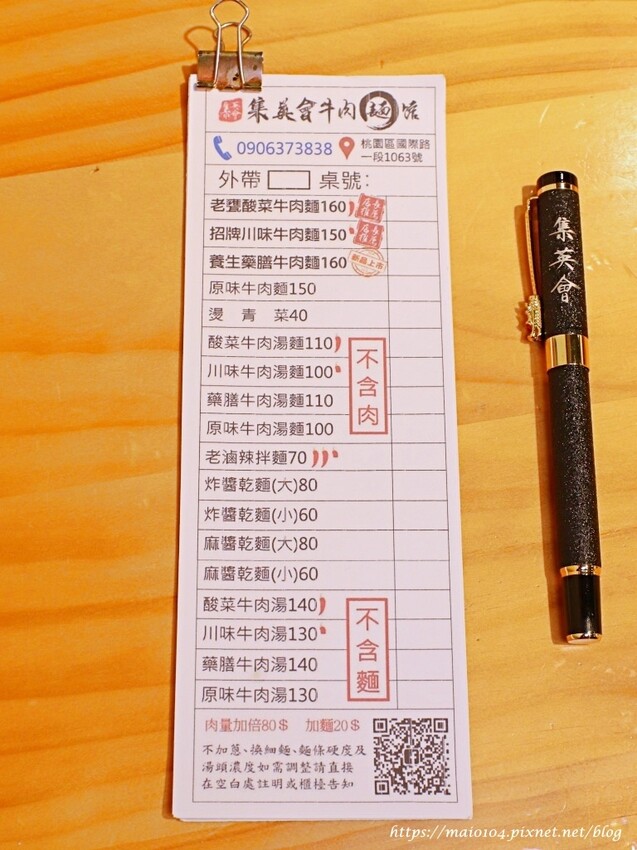 集英會牛肉麵館
0906373838
桃園區國際路
一段1063號
外帶 桌號:
老甕酸菜牛肉麵160
招牌川味牛肉麵150
養生藥膳牛肉麵160
新品上市
原味牛肉麵150
燙 青 菜40
酸菜牛肉湯麵110
川味牛肉湯麵100
藥膳牛肉湯麵110
原味牛肉湯麵100
不含肉
老滷辣拌麵70
炸醬乾麵(大)80
炸醬乾麵(小)60
麻醬乾麵(大)80
麻醬乾麵(小)60
酸菜牛肉湯140
川味牛肉湯130
藥膳牛肉湯140
原味牛肉湯130
不含麵
肉量加倍80$ 加麵20$
不加蔥、換細麵、麵條硬度及
湯頭濃度如需調整請直接
在空白處註明或櫃檯告知
集英會
https://maio104.pixnet.net/blog